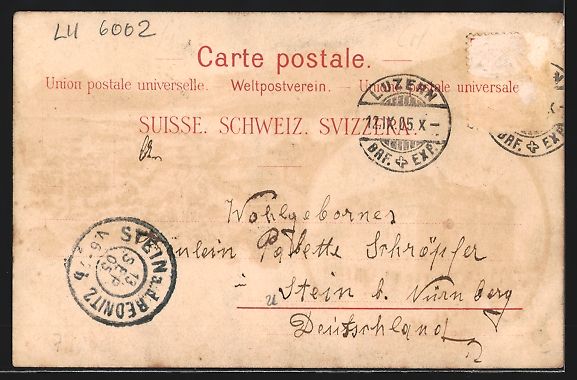 LU 6002
Carte postale.
Union postale universelle. Weltpostverein. — Unione postale universale
SUISSE. SCHWEIZ. SVIZZERA.
LUZERN
12.IX.05.X—
BRF. EXP.
X—
EXP.
Wohlgeborner
Fräulein Babette Schröpfer
in Stein b. Nürnberg
Deutschland
STEIN a.d. REDNITZ
13
SEP
05
V.6-7h